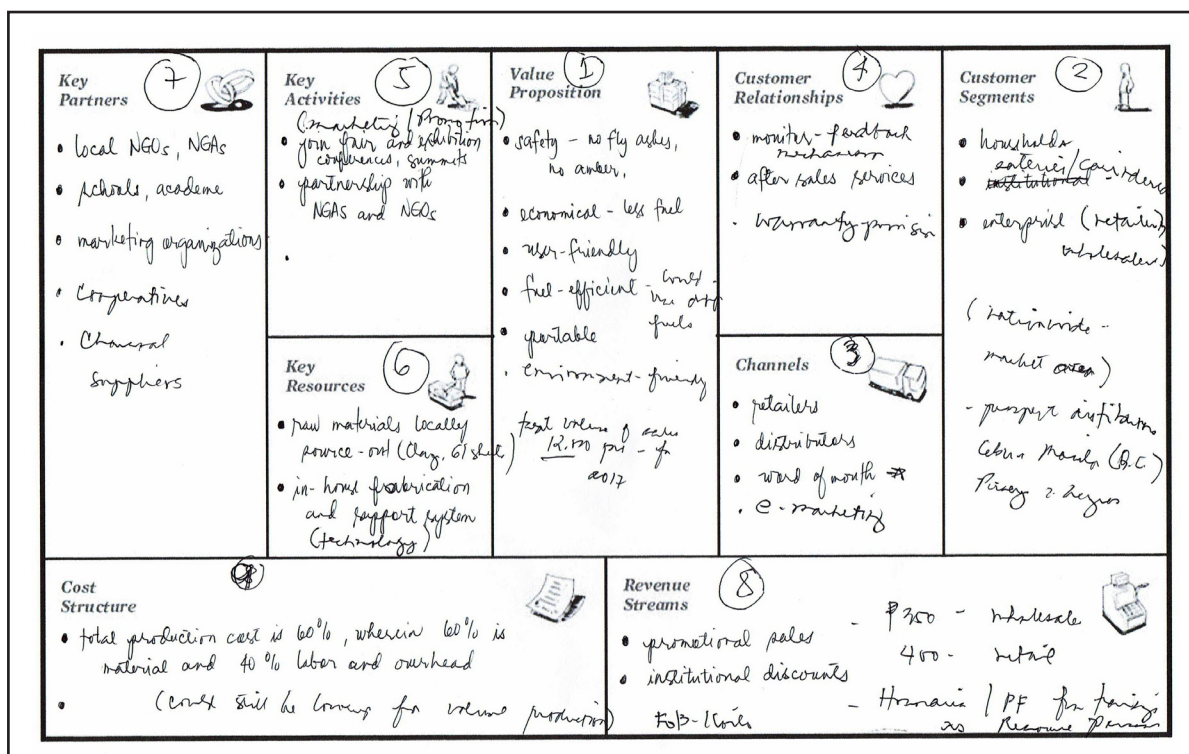 Key
Partners
7
• local NGOs, NGAs
• schools, academe
• marketing organizations
• Cooperatives
• Charcoal
suppliers
Key
Activities
5
(marketing/Promo
• join fair and exhibition
conferences, summits
• partnership with
NGAs and NGOs
•
Key
Resources
6
• raw materials locally
source-out (Clay, GI sheet)
• in-house fabrication
and support system
(technology)
Value
Proposition
1
• safety - no fly ashes,
no amber,
• economical - less fuel
• user-friendly
• fuel-efficient - could
use
fuels
• portable
• environment-friendly
volume of sales
2017
Customer
Relationships
4
• monitor-feedback
mechanism
• after sales services
• warranty
Channels
3
• retailers
• distributors
• word of mouth
• e-marketing
Customer
Segments
2
• households
eateries/
• institutional
• enterprise (retailers
wholesalers)
(nationwide -
market area)
- prospect
Cebu Manila (Q.C.)
Negros
Cost
Structure
9
• total production cost is 60%, wherein 60% is
material and 40% labor and overhead
• (could still be lower for volume production)
Revenue
Streams
8
• promotional sales
• institutional discounts
FOB-Iloilo
- ₱350 - wholesale
400 - retail
- Honoraria / PF for trainings
as Resource Person